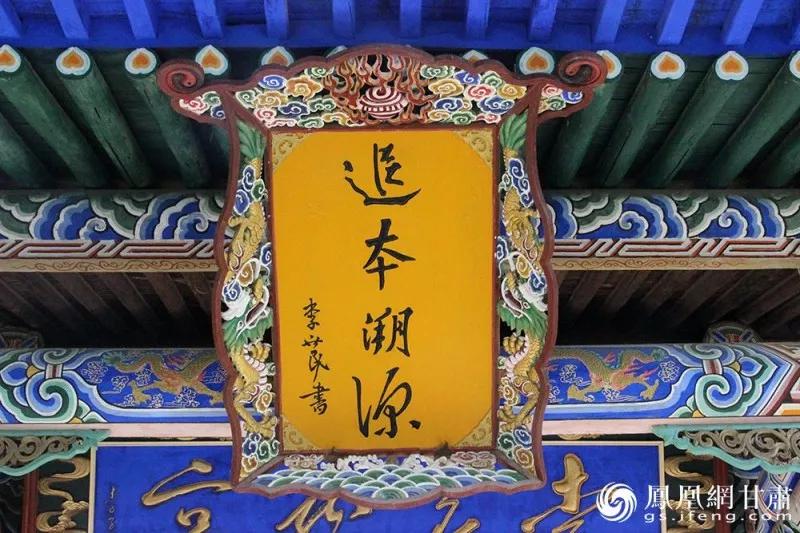 追本溯源
李世民書
鳳凰網甘肅
gs.ifeng.com